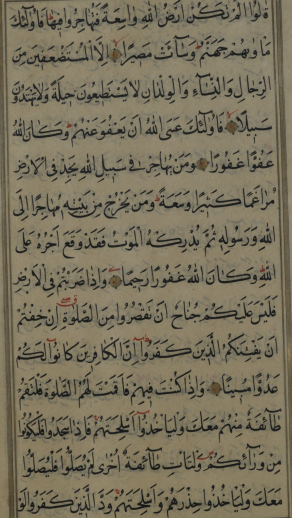 قَالُوا أَلَمْ تَكُنْ أَرْضُ اللهِ وَاسِعَةً فَتُهَاجِرُوا فِيهَا فَأُولَئِكَ
مَأْوَيهُمْ جَهَنَّمُ وَسَاءَتْ مَصِيرًا إِلَّا الْمُسْتَضْعَفِينَ مِنَ
الرِّجَالِ وَالنِّسَاءِ وَالْوِلْدَانِ لَا يَسْتَطِيعُونَ حِيلَةً وَلَا يَهْتَدُونَ
سَبِيلًا فَأُولَئِكَ عَسَى اللهُ أَنْ يَعْفُوَ عَنْهُمْ وَكَانَ اللهُ
عَفُوًّا غَفُورًا وَمَنْ يُهَاجِرْ فِي سَبِيلِ اللهِ يَجِدْ فِي الْأَرْضِ
مُرَاغَمًا كَثِيرًا وَسَعَةً وَمَنْ يَخْرُجْ مِنْ بَيْتِهِ مُهَاجِرًا إِلَى
اللهِ وَرَسُولِهِ ثُمَّ يُدْرِكْهُ الْمَوْتُ فَقَدْ وَقَعَ أَجْرُهُ عَلَى
اللهِ وَكَانَ اللهُ غَفُورًا رَحِيمًا وَإِذَا ضَرَبْتُمْ فِي الْأَرْضِ
فَلَيْسَ عَلَيْكُمْ جُنَاحٌ أَنْ تَقْصُرُوا مِنَ الصَّلٰوةِ إِنْ خِفْتُمْ
أَنْ يَفْتِنَكُمُ الَّذِينَ كَفَرُوا إِنَّ الْكَافِرِينَ كَانُوا لَكُمْ
عَدُوًّا مُبِينًا وَإِذَا كُنْتَ فِيهِمْ فَأَقَمْتَ لَهُمُ الصَّلٰوةَ فَلْتَقُمْ
طَائِفَةٌ مِنْهُمْ مَعَكَ وَلْيَأْخُذُوا أَسْلِحَتَهُمْ فَإِذَا سَجَدُوا فَلْيَكُونُوا
مِنْ وَرَائِكُمْ وَلْتَأْتِ طَائِفَةٌ أُخْرَى لَمْ يُصَلُّوا فَلْيُصَلُّوا
مَعَكَ وَلْيَأْخُذُوا حِذْرَهُمْ وَأَسْلِحَتَهُمْ وَدَّ الَّذِينَ كَفَرُوا لَوْ